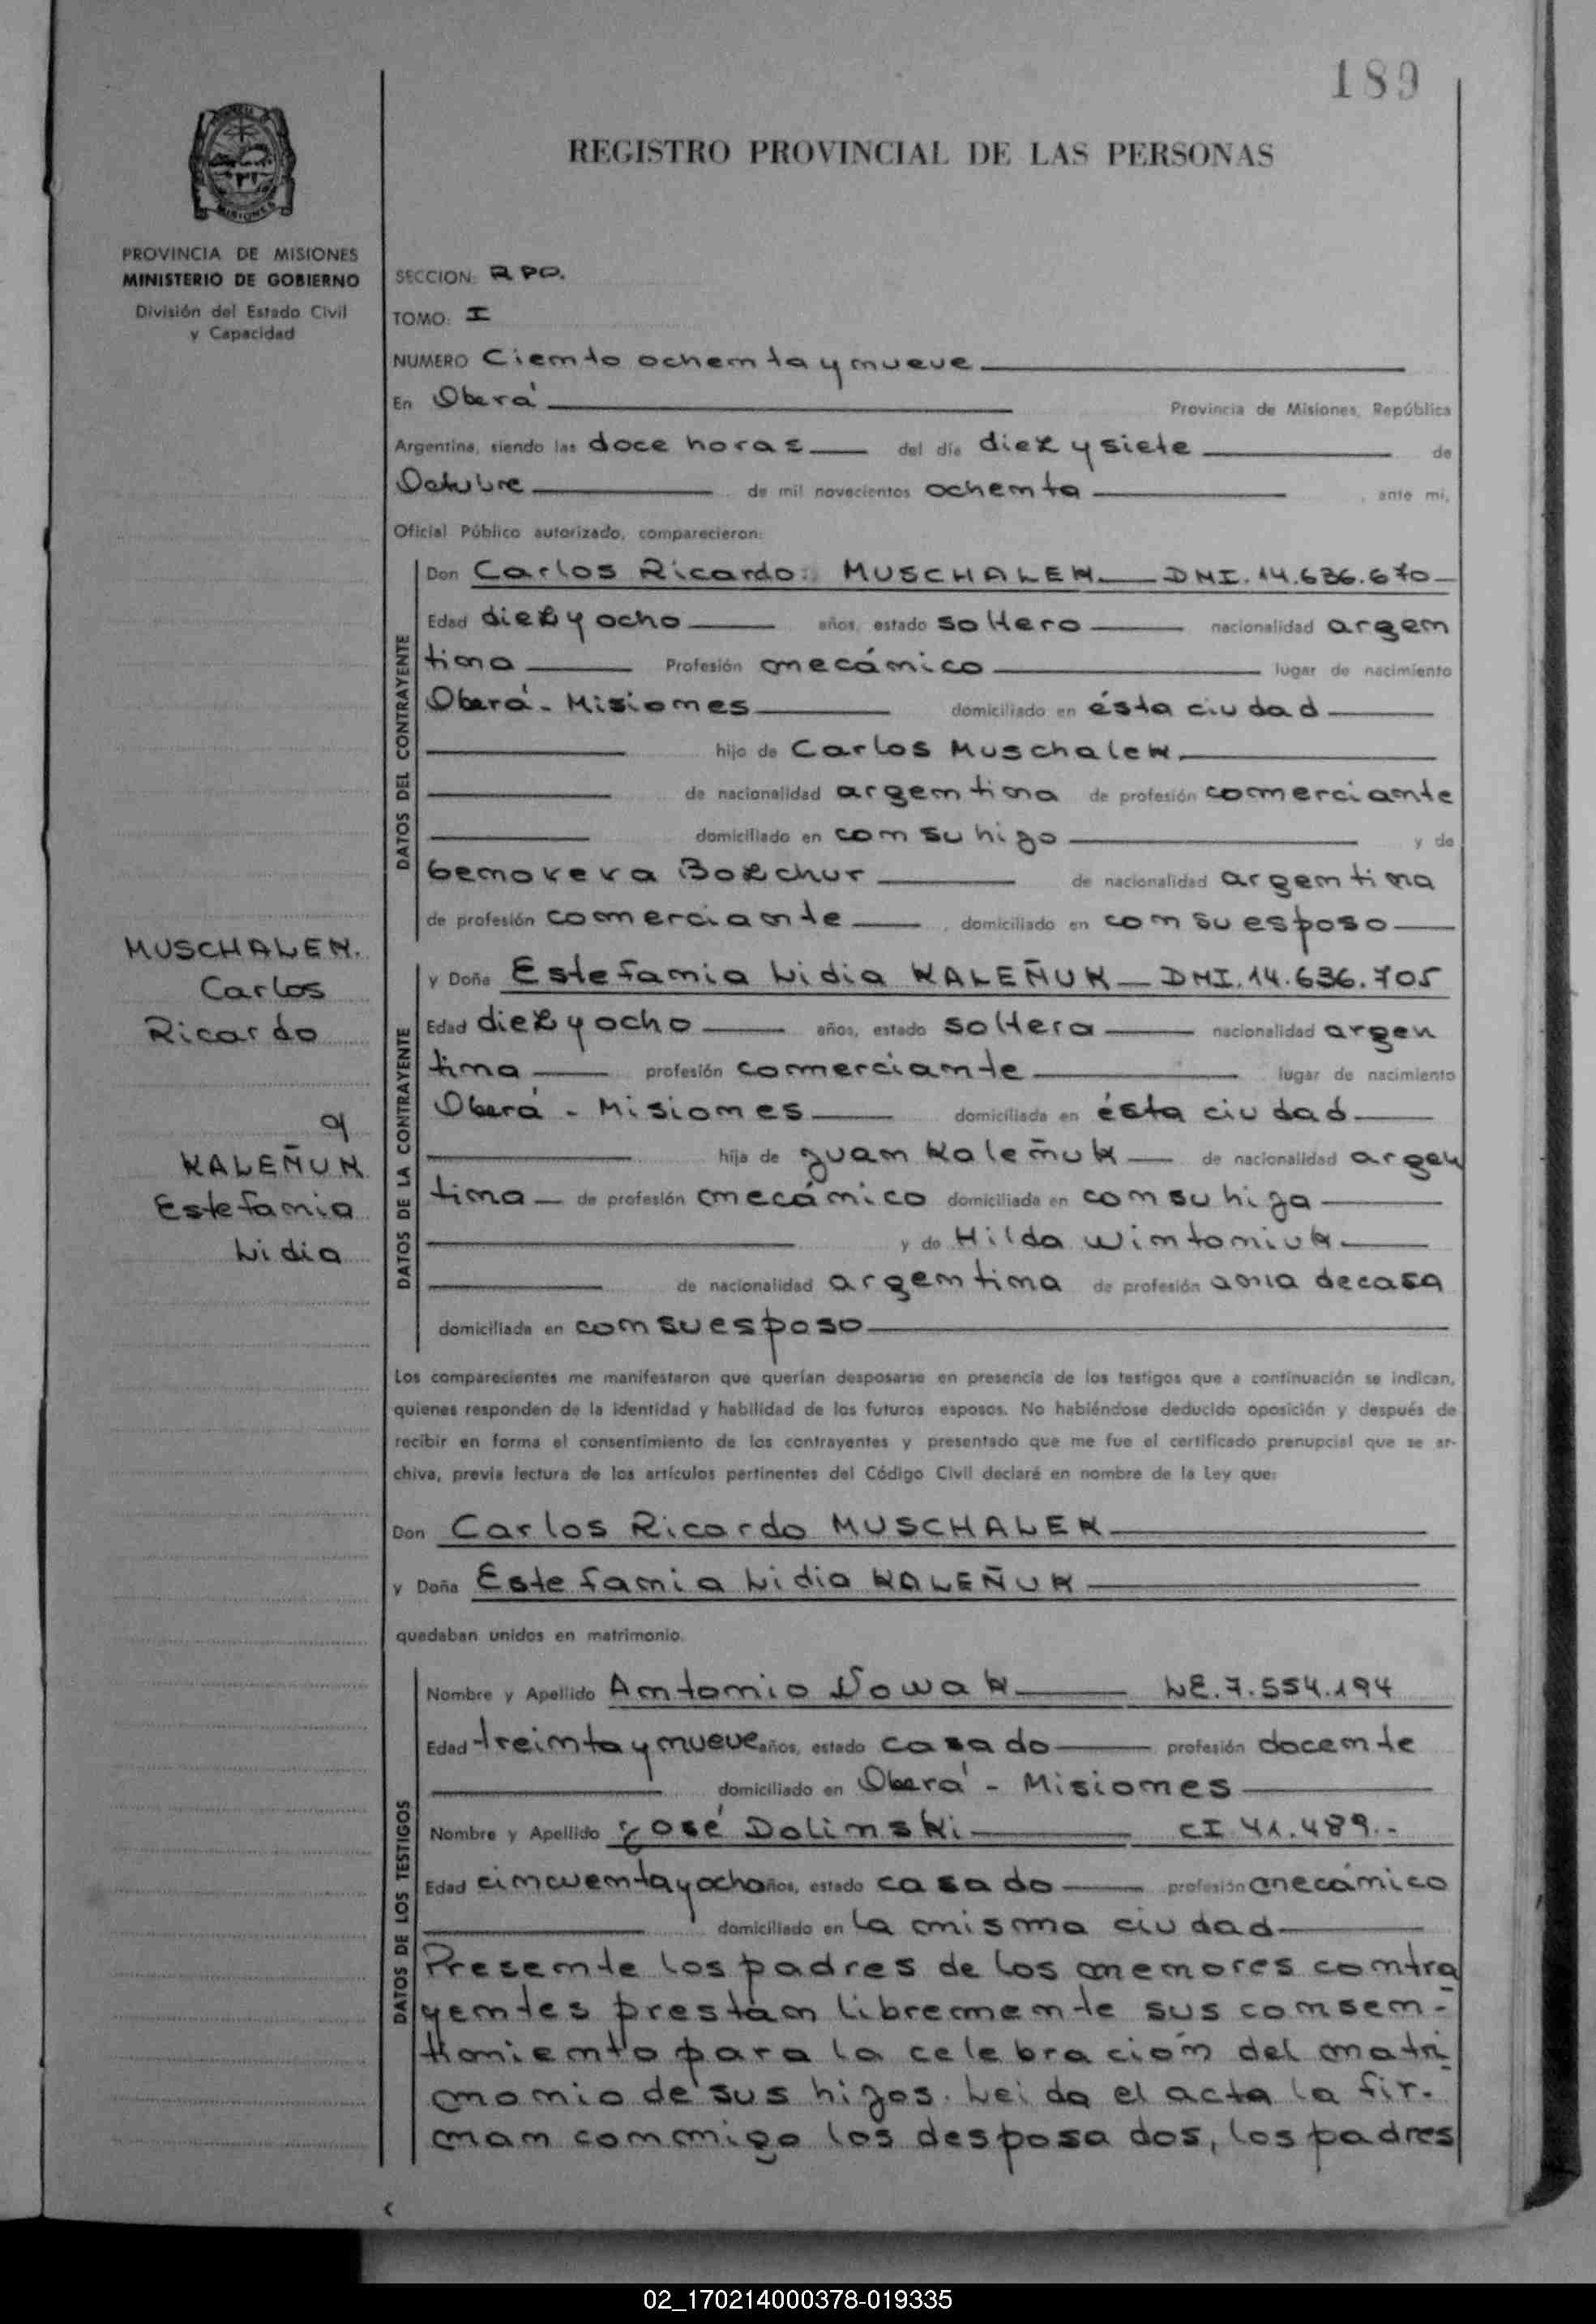 189
REGISTRO PROVINCIAL DE LAS PERSONAS
MISIONES
PROVINCIA DE MISIONES
MINISTERIO DE GOBIERNO
División del Estado Civil
y Capacidad
SECCION: R.P.O.
TOMO: I
NUMERO Ciento ochenta y nueve
En Oberá Provincia de Misiones, República
Argentina, siendo las doce horas del día diez y siete de
Octubre de mil novecientos ochenta , ante mi,
Oficial Público autorizado, comparecieron:
DATOS DEL CONTRAYENTE
Don Carlos Ricardo MUSCHALEK DNI. 14.636.670
Edad diez y ocho años, estado soltero nacionalidad argen
tina Profesión mecánico lugar de nacimiento
Oberá - Misiones domiciliado en ésta ciudad
hijo de Carlos Muschalek
de nacionalidad argentina de profesión comerciante
domiciliado en con su hijo y de
Genoveva Bozchur de nacionalidad argentina
de profesión comerciante , domiciliado en con su esposo
MUSCHALEK.
Carlos
Ricardo
y
KALEÑUK
Estefania
Lidia
DATOS DE LA CONTRAYENTE
y Doña Estefania Lidia KALEÑUK DNI. 14.636.705
Edad diez y ocho años, estado soltera nacionalidad argen
tina profesión comerciante lugar de nacimiento
Oberá - Misiones domiciliada en ésta ciudad
hija de Juan Kaleñuk de nacionalidad argen
tina de profesión mecánico domiciliada en con su hija
y de Hilda Wintoniuk
de nacionalidad argentina de profesión ama de casa
domiciliada en con su esposo
Los comparecientes me manifestaron que querían desposarse en presencia de los testigos que a continuación se indican,
quienes responden de la identidad y habilidad de los futuros esposos. No habiéndose deducido oposición y después de
recibir en forma el consentimiento de los contrayentes y presentado que me fue el certificado prenupcial que se ar-
chiva, previa lectura de los artículos pertinentes del Código Civil declaré en nombre de la Ley que:
Don Carlos Ricardo MUSCHALEK
y Doña Estefania Lidia KALEÑUK
quedaban unidos en matrimonio.
DATOS DE LOS TESTIGOS
Nombre y Apellido Antonio Nowak LE. 7.554.194
Edad treinta y nueve años, estado casado profesión docente
domiciliado en Oberá - Misiones
Nombre y Apellido José Dolinski CI 41.489.-
Edad cincuenta y ocho años, estado casado profesión mecánico
domiciliado en la misma ciudad
Presente los padres de los menores contra
yentes prestán libremente sus consen-
timiento para la celebración del matri
monio de sus hijos. Leida el acta la fir-
man conmigo los desposados, los padres
02_170214000378-019335